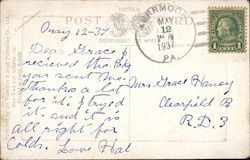 May 12-37
POST CARD
MAY
12
1937
PA.
Dear Grace I
recieved the Pkg
you sent me.
Thanks a lot
for it. I tryed
it and it is
all right for
Colds. Love Hat
Mrs. Grace Haney
Clearfield Pa
R.D.3
1 1